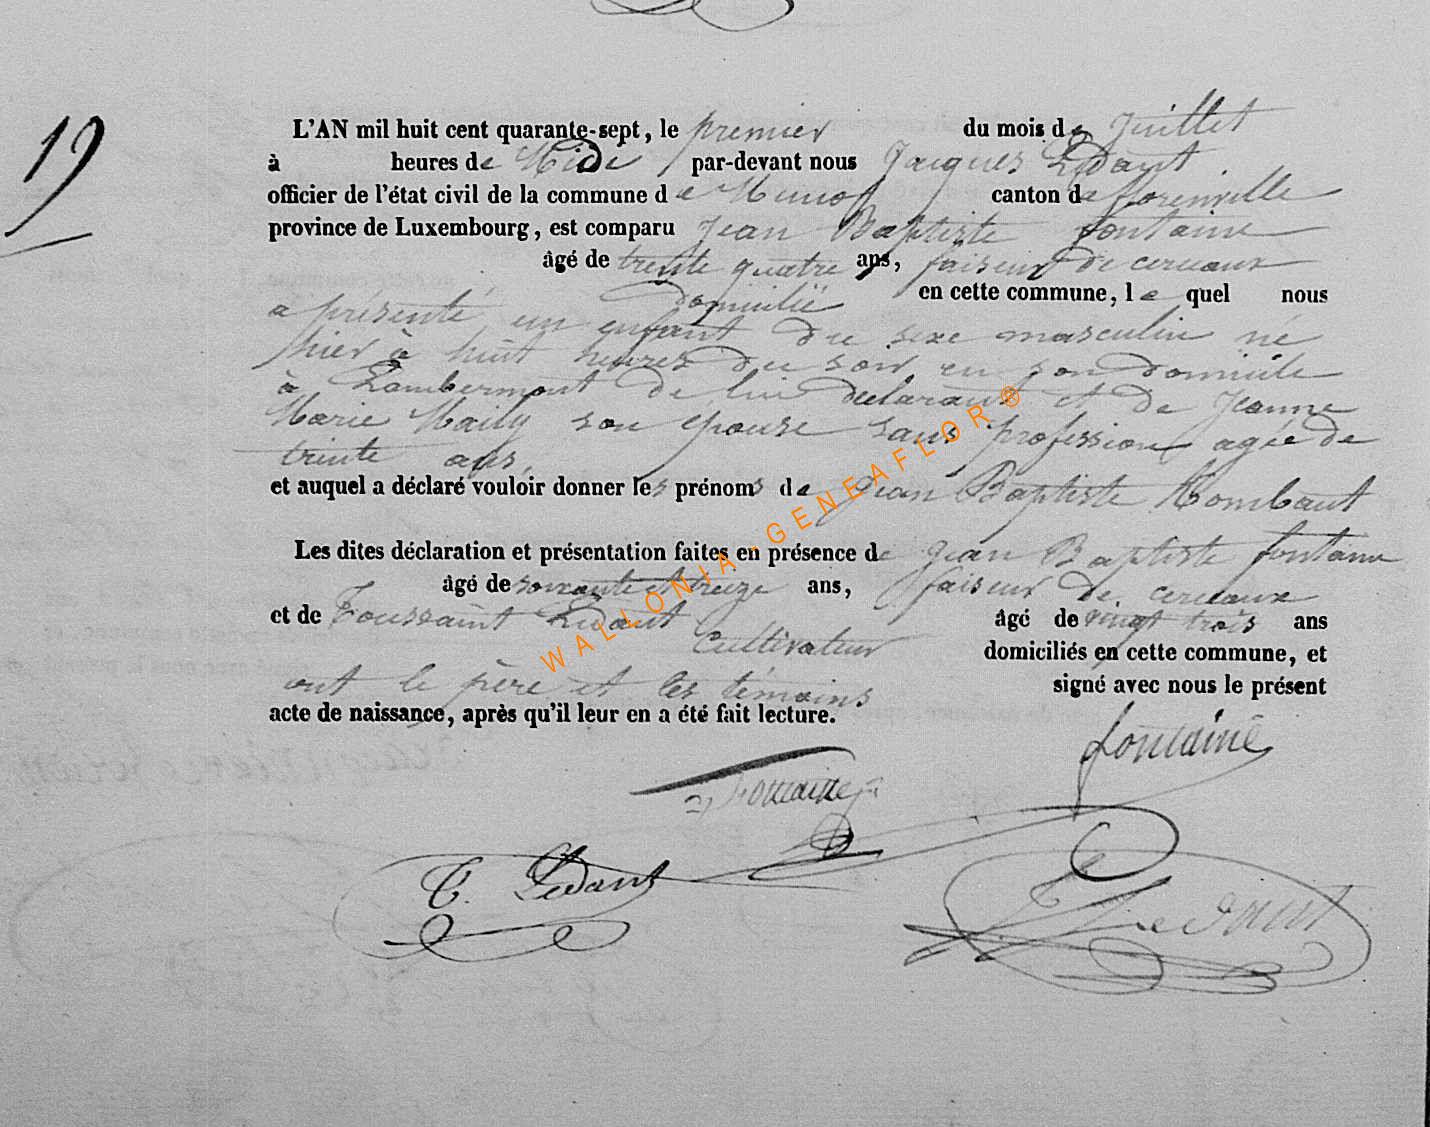 19
L'AN mil huit cent quarante-sept, le premier du mois de Juillet
à heures de Midi par-devant nous Jacques Ledant
officier de l'état civil de la commune de Muno canton de florenville
province de Luxembourg, est comparu Jean Baptiste fontaine
âgé de trente quatre ans, faiseur de cerceaux
domicilié en cette commune, le quel nous
a présenté un enfant du sexe masculin né
hier à huit heures du soir en son domicile
à Lambermont de lui déclarant et de Jeanne
Marie Maily son épouse sans profession agée de
trente ans,
et auquel a déclaré vouloir donner les prénoms de Jean Baptiste Rombaut
Les dites déclaration et présentation faites en présence de Jean Baptiste fontaine
âgé de soixante et treize ans, faiseur de cerceaux
et de Toussaint Ledant âgé de vingt trois ans
Cultivateur domiciliés en cette commune, et
ont le père et les témoins signé avec nous le présent
acte de naissance, après qu'il leur en a été fait lecture.
fontaine
Fontaine
T. Ledant
J. Ledant
WALLONIA-GENEAFLOR®